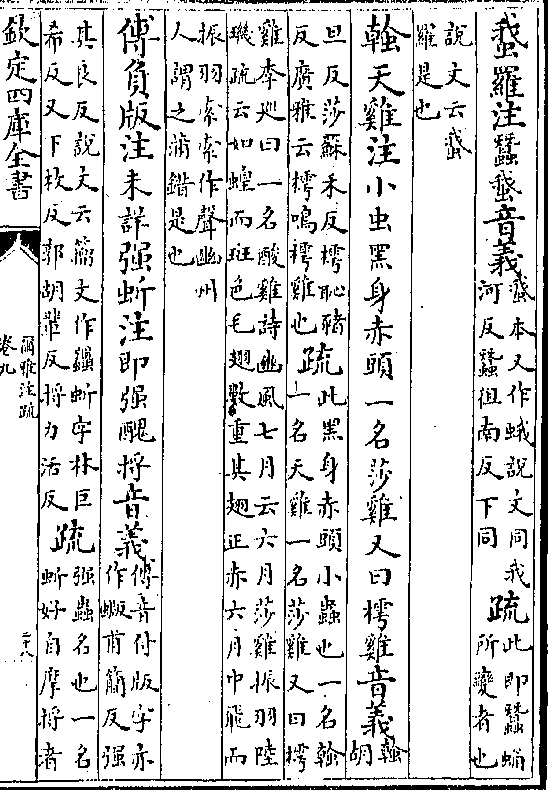 蛾羅注蠶蛾音義蛾本又作蛾說文同我
河反蠶徂南反下同疏此即蠶蛹
所變者也
說文云蛾
羅是也
螒天雞注小虫黑身赤頭一名莎雞又曰樗雞音義螒胡
旦反莎蘇禾反樗恥豬
反廣雅云樗鳴樗雞也疏此黑身赤頭小蟲也一名螒
一名天雞一名莎雞又曰樗
雞李巡曰一名酸雞詩豳風七月云六月莎雞振羽陸
璣疏云如蝗而班色毛翅數重其翅正赤六月中飛而
振羽索索作聲幽州
人謂之蒲錯是也
傅負版注未詳强蚚注即强醜捋音義傅音付版字亦
作蝂甫簡反强
其良反說文云籀文作䘆蚚字林巨
希反又下枚反郭胡輩反捋力活反疏强蟲名也一名
蚚好自摩捋者
欽定四庫全書
爾雅注疏
卷九
二十八